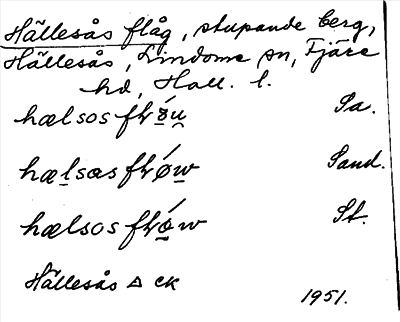 Hällesås flåg, stupande berg,
Hällesås, Lindome sn, Fjäre
hd, Hall. l.
hælsos flǿu Sa.
hælsos flǿw Sand.
hælsos flǿw St.
Hällesås Δ ck
1951.